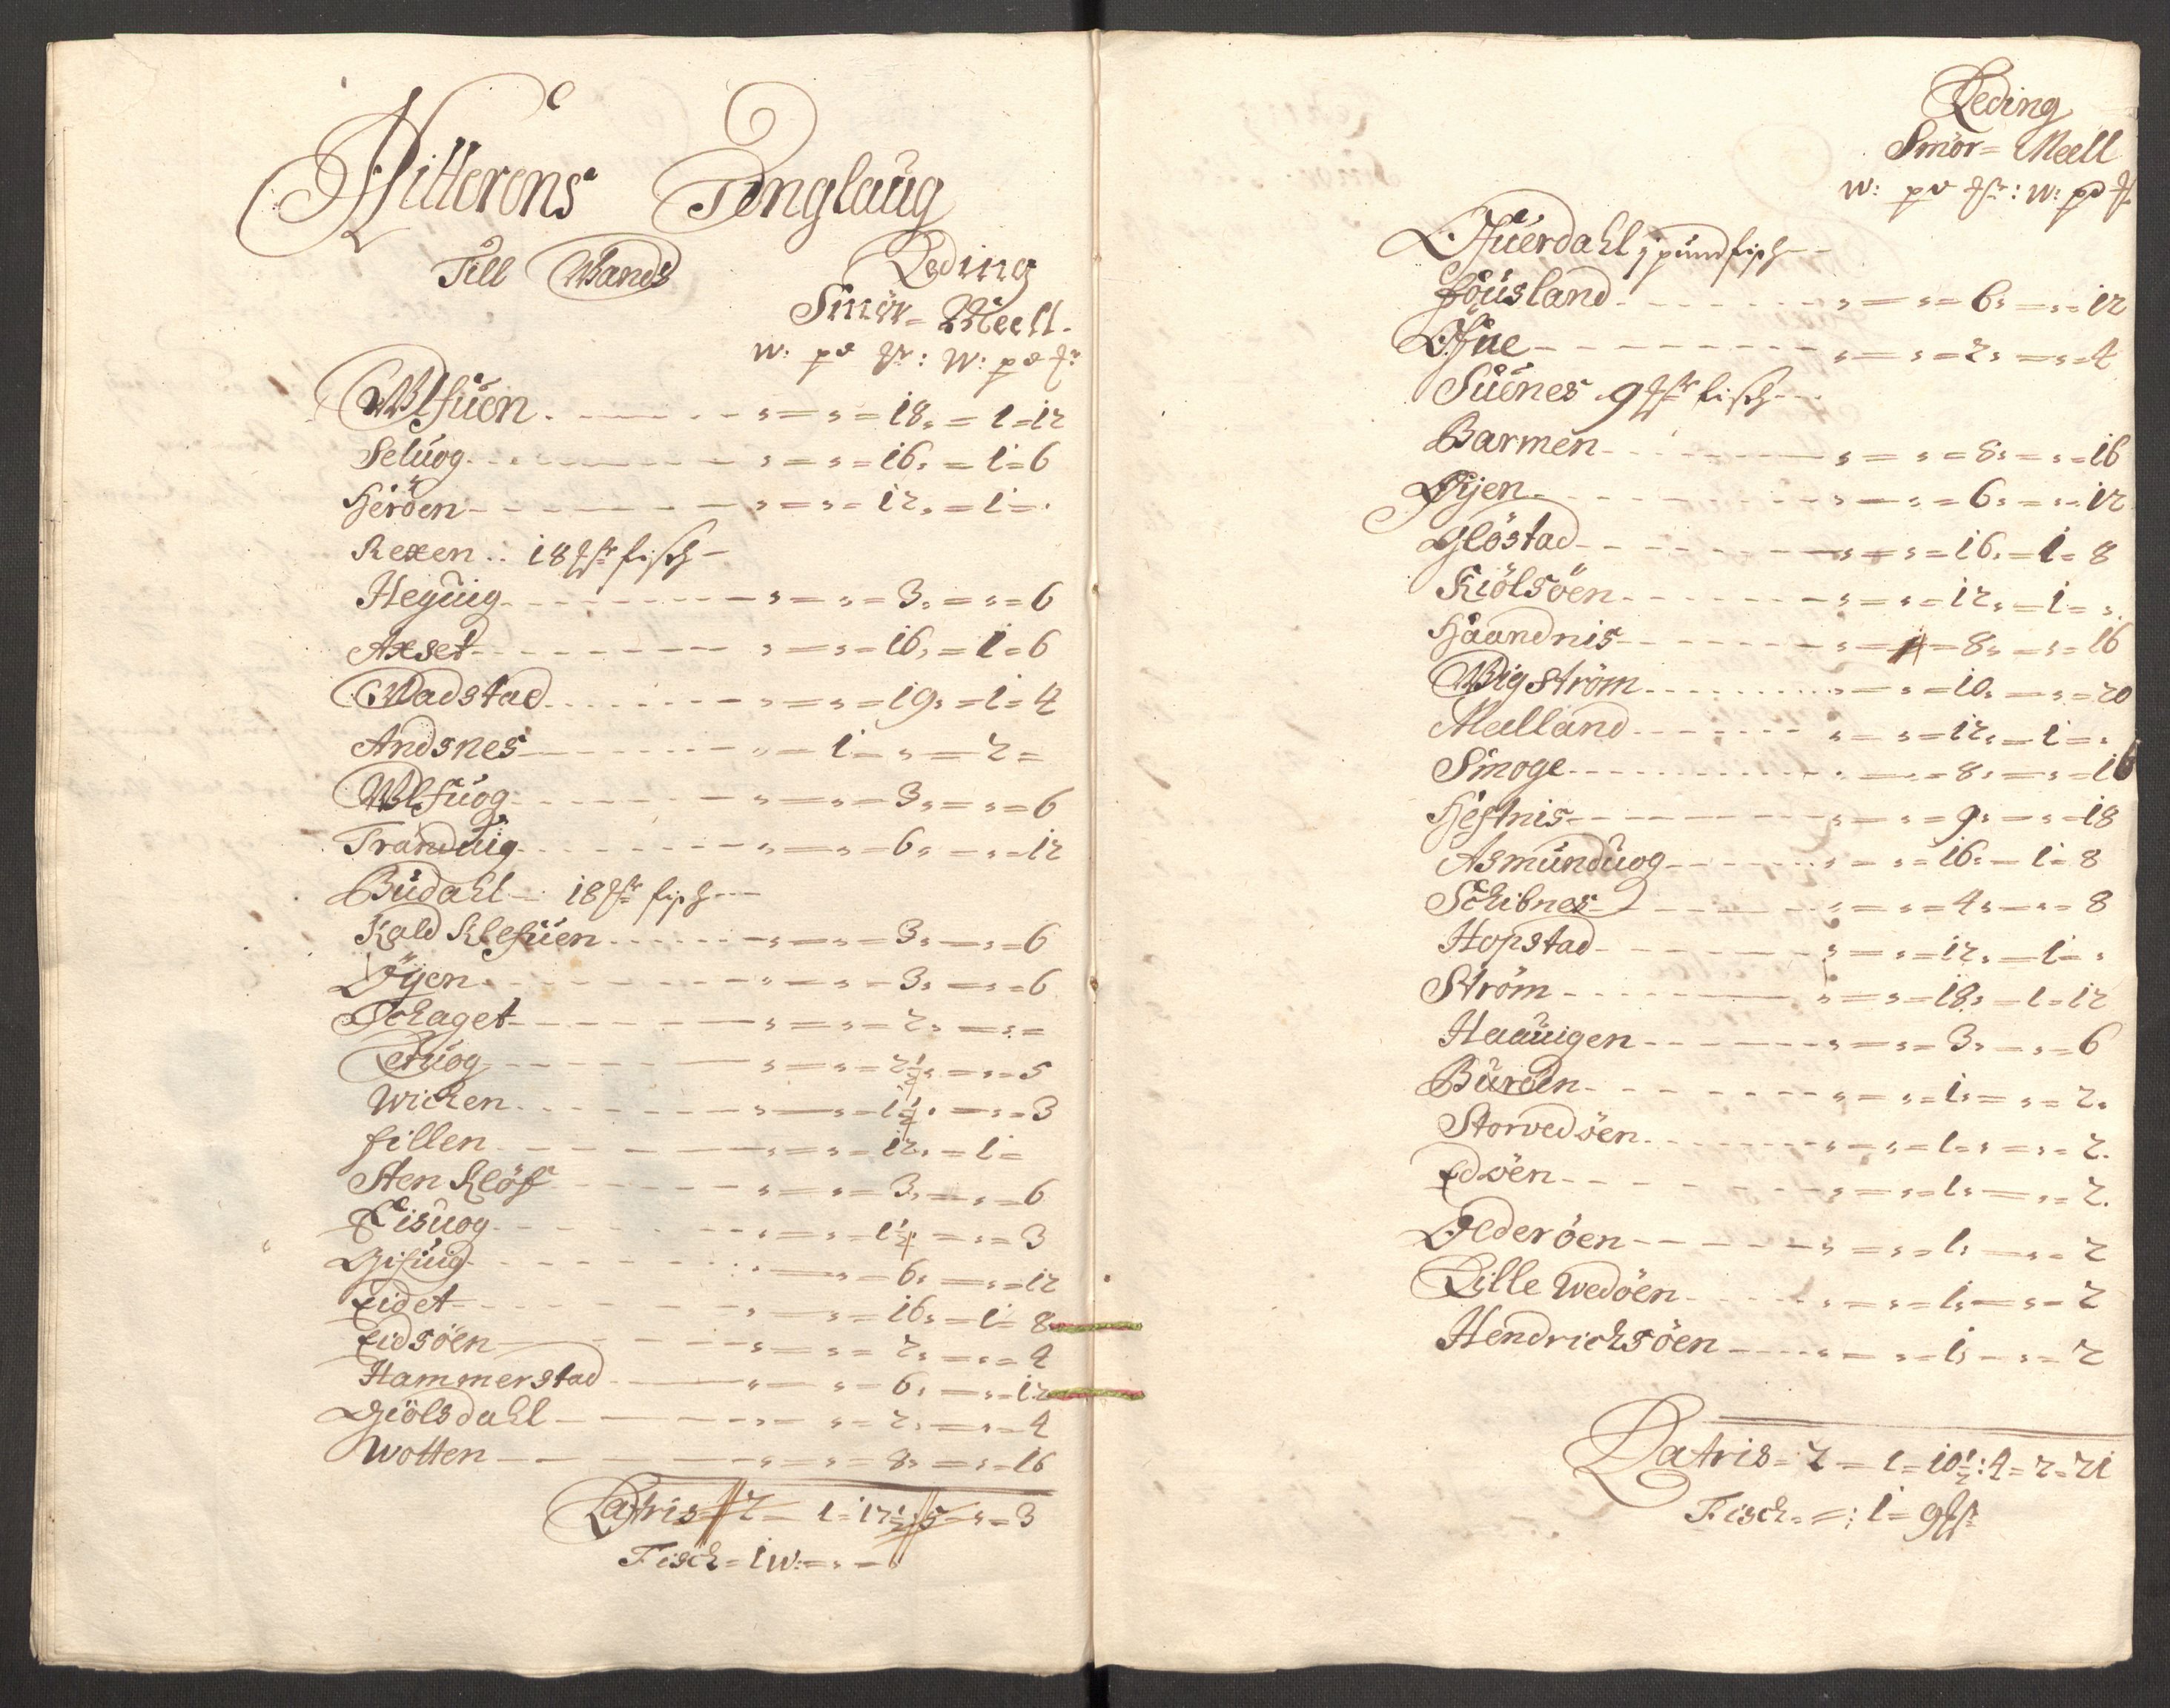 Hitterens Tinglaug
Till Wands
Leding
Smör= Meell.
W: pd ℔: W: pd ℔
Wlfuen . - - - „ = „ = 18 „ = 1 = 12
Seluog - - - „ = „ = 16 „ = 1 = 6
Heröen - - - „ = „ = 12 „ = 1 = „
Rexen .. 18 ℔ fisch -
Heguig - - - „ = „ = 3 „ = „ = 6
Axset - - - „ = „ = 16 „ = 1 = 6
Wadstad - - - „ = „ = 19 „ = 1 = 4
Andsnes - - - „ = 1 = „ = 2 =
Wlfuog - - - „ = „ = 3 „ = „ = 6
Tranduig - - - „ = „ = 6 „ = „ = 12
Budahl - 18 ℔ fisch - - -
Kald Klefuen - - - „ = „ = 3 „ = „ = 6
Öyen - - - „ = „ = 3 „ = „ = 6
Schaget - - - „ = „ = 2 „ = „ =
Letuog - - - „ = „ = 2½ „ = „ = 5
Wichen - - - „ = „ = 1½ „ = „ = 3
fillen - - - „ = „ = 12 „ = 1 =
Sten Klöf - - - „ = „ = 3 „ = „ = 6
Eisuog - - - „ = „ = 1½ „ = „ = 3
Gifuig - - - „ = „ = 6 „ = „ = 12
Eidet - - - „ = „ = 16 „ = 1 = 8
Eidsöen - - - „ = „ = 2 „ = „ = 4
Hammerstad - - - „ = „ = 6 „ = „ = 12
Giölsdahl - - - „ = „ = 2 „ = „ = 4
Wotten - - - „ = „ = 8 „ = „ = 16
Latris = 2 = 1 = 17½: 5 = „ = 3
Fisch = 1 W: = „ =
Leding
Smör= Meell
W: pd ℔: W: pd ℔
Ofuerdahl ; pund fisch - -
fousland - - - „ = „ = 6 „ = „ = 12
Ofue - - - „ = „ = 2 „ = „ = 4
Suenes 9 ℔ fisch - - -
Barmen - - - „ = „ = 8 „ = „ = 16
Öyen - - - „ = „ = 6 „ = „ = 12
Gløstad - - - „ = „ = 16 „ = 1 = 8
Kiölsöen - - - „ = „ = 12 „ = 1 = „
Haandnis - - - „ = = 8 „ = „ = 16
Wigström - - - „ = „ = 10 „ = „ = 20
Melland - - - „ = „ = 12 „ = 1 = „
Smoge - - - „ = „ = 8 „ = „ = 16
Hestnis - - - „ = „ = 9 „ = „ = 18
Asmunduog - - - „ = „ = 16 „ = 1 = 8
Schibnes - - - „ = „ = 4 „ = „ = 8
Hopstad - - - „ = „ = 12 „ = 1 = „
Ström - - - „ = „ = 18 „ = 1 = 12
Haauigen - - - „ = „ = 3 „ = „ = 6
Buröen - - - „ = „ = 1 „ = „ = 2 „
Storvedöen - - - „ = „ = 1 = „ = „ = 2.
Edsöen - - - „ = „ = 1 „ = „ = 2.
Olderöen - - - „ = „ = 1 „ = „ = 2
Lille Wedöen - - - „ = „ = 1 „ = „ = 2
Hendrichsöen - - - „ = „ = 1 „ = „ = 2
Latris = 2 = 1 = 10½: 4 = 2 = 21
Fisch = = ; 1 = 9 ℔